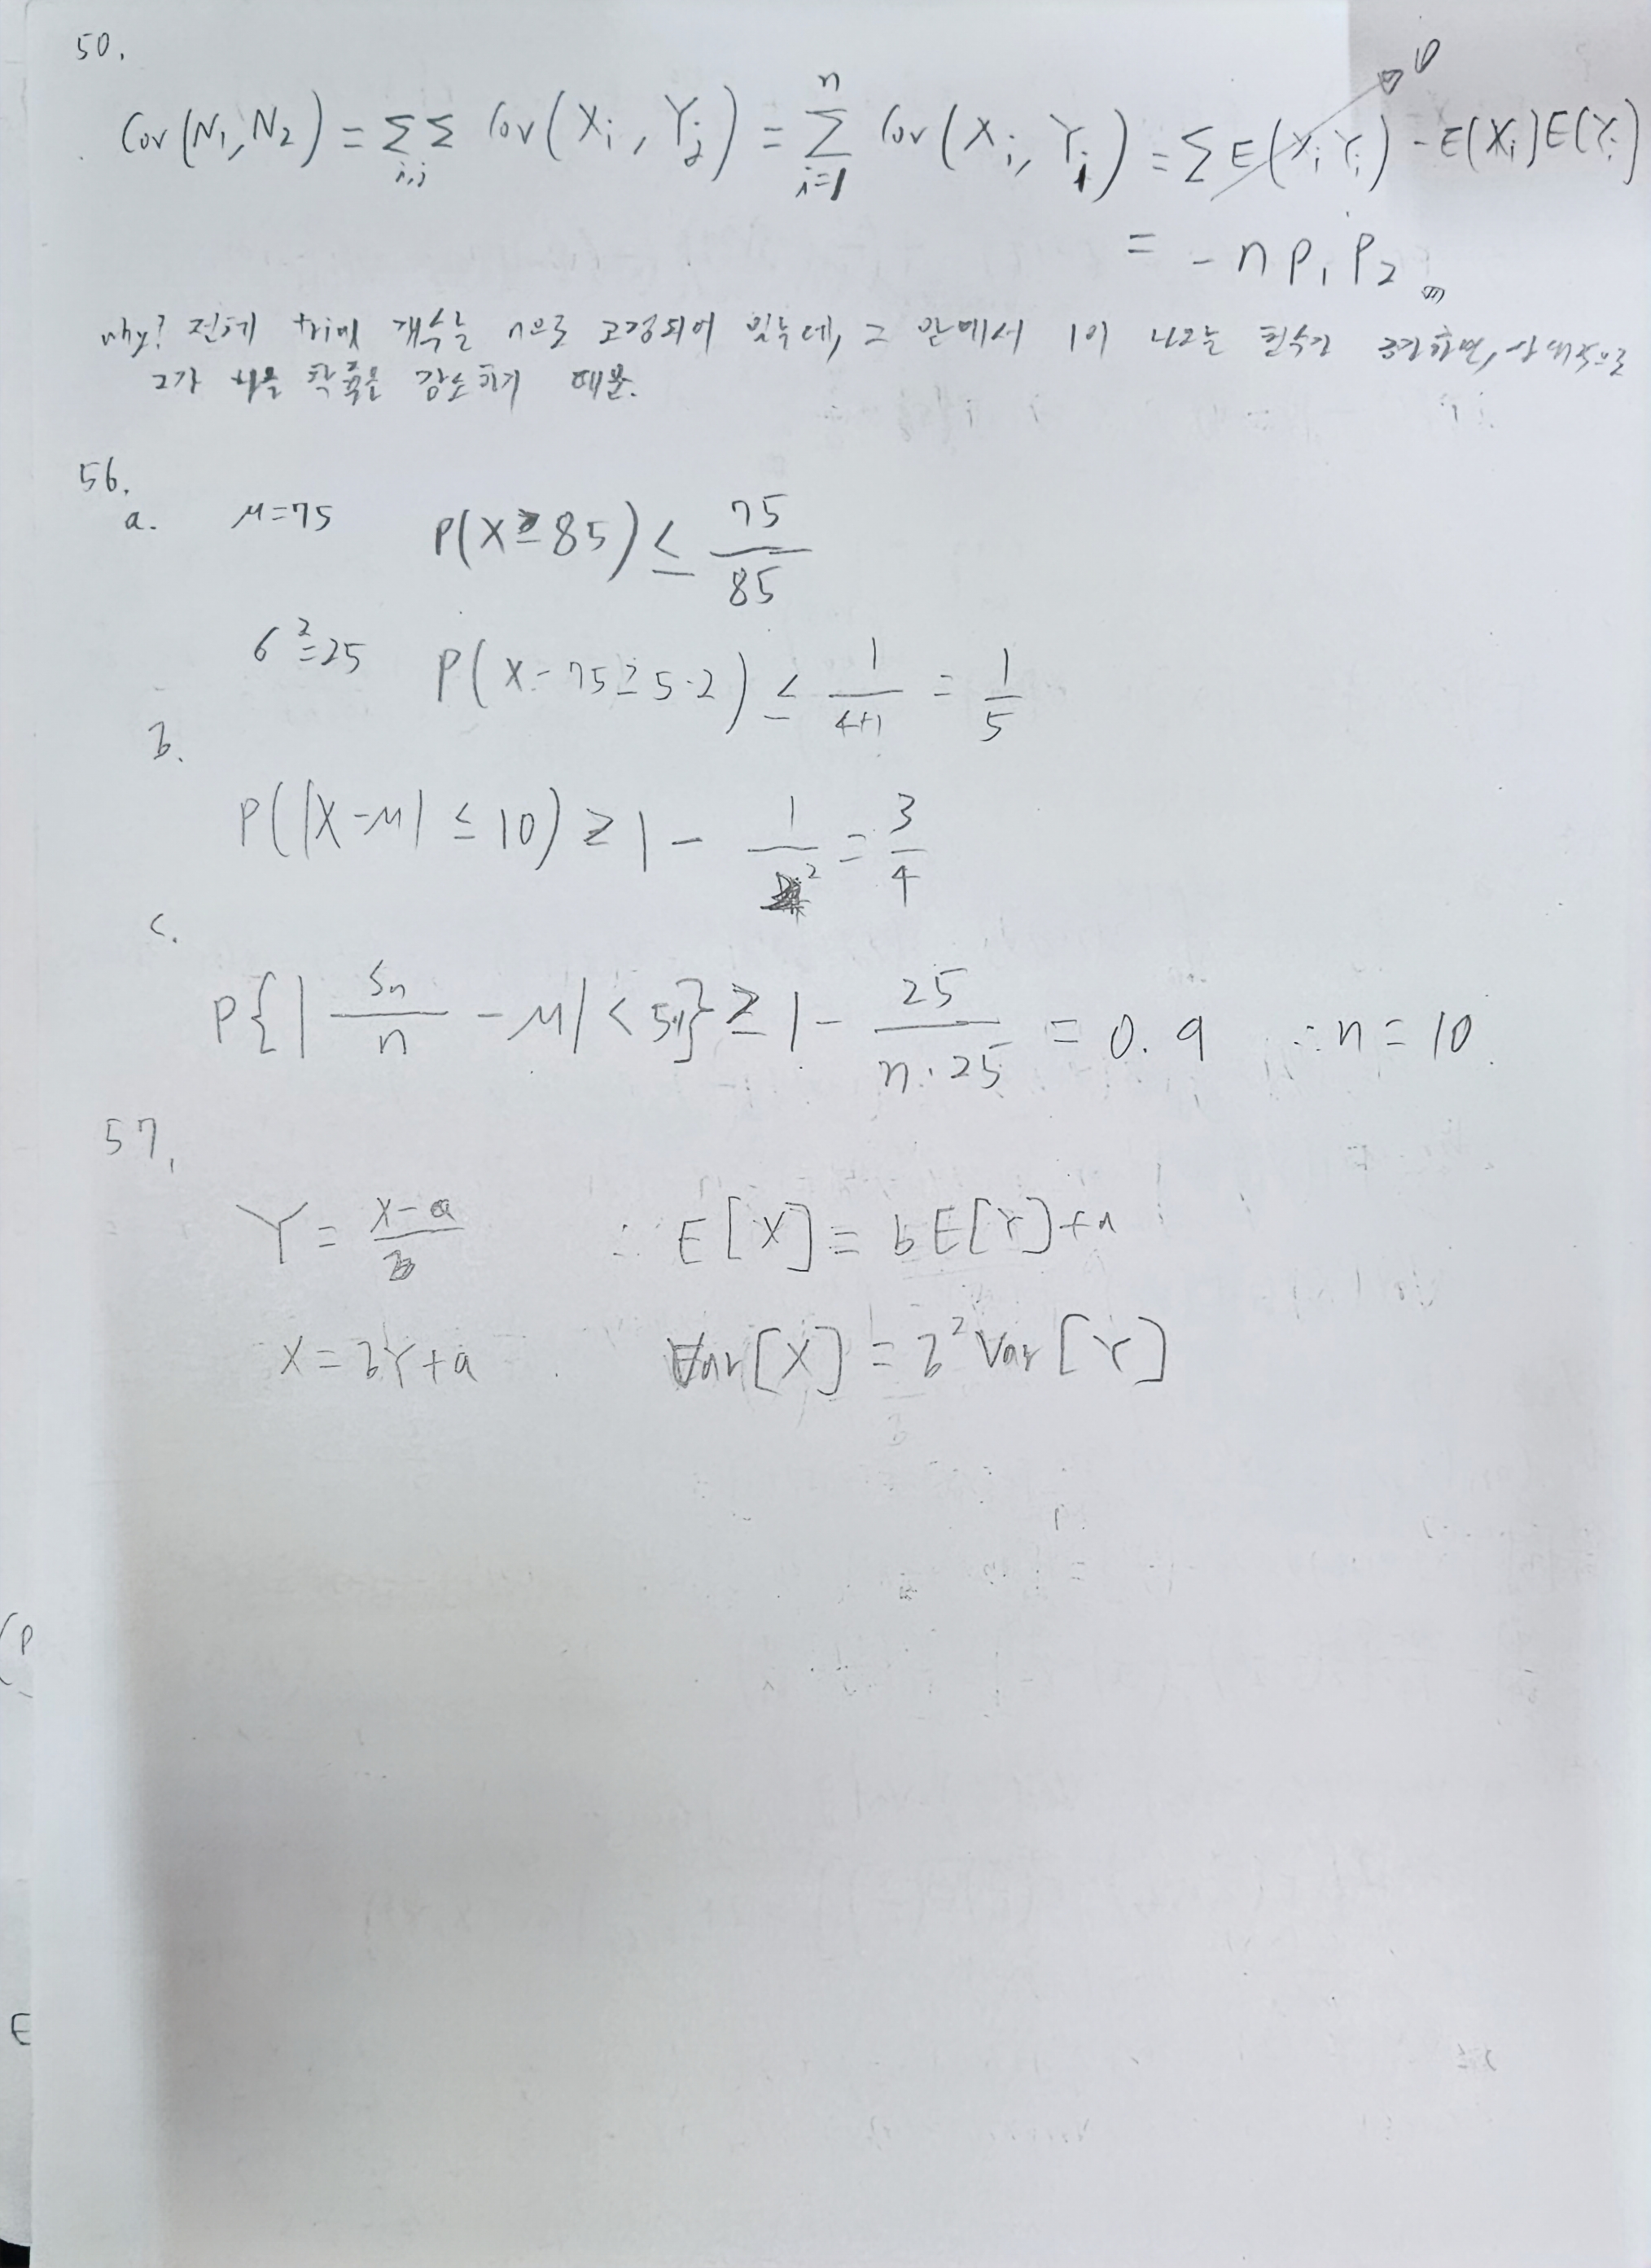 50.
Cov(N₁, N₂) = Σ Σ i,j Cov(Xi, Yj) = Σ i=1 n Cov(Xi, Yi) = Σ E(Xi Yi) - E(Xi)E(Yi)
0
= -n p₁ p₂
why? 전체 trial 개수는 n으로 고정되어 있는데, 그 안에서 1이 나오는 횟수가 증가하면, 상대적으로
2가 나올 확률은 감소하기 때문.
56.
a. μ=75 P(X≥85) ≤ 75/85
σ²=25 P(X-75≥5·2) ≤ 1/(4+1) = 1/5
b.
P(|X-μ| ≤ 10) ≥ 1 - 1/2² = 3/4
c.
P{|Sn/n - μ| < 5} ≥ 1 - 25/(n·25) = 0.9 ∴ n = 10.
57.
Y = (X-a)/b ∴ E[X] = bE[Y]+a
X = bY+a Var[X] = b² Var[Y]
(P
E